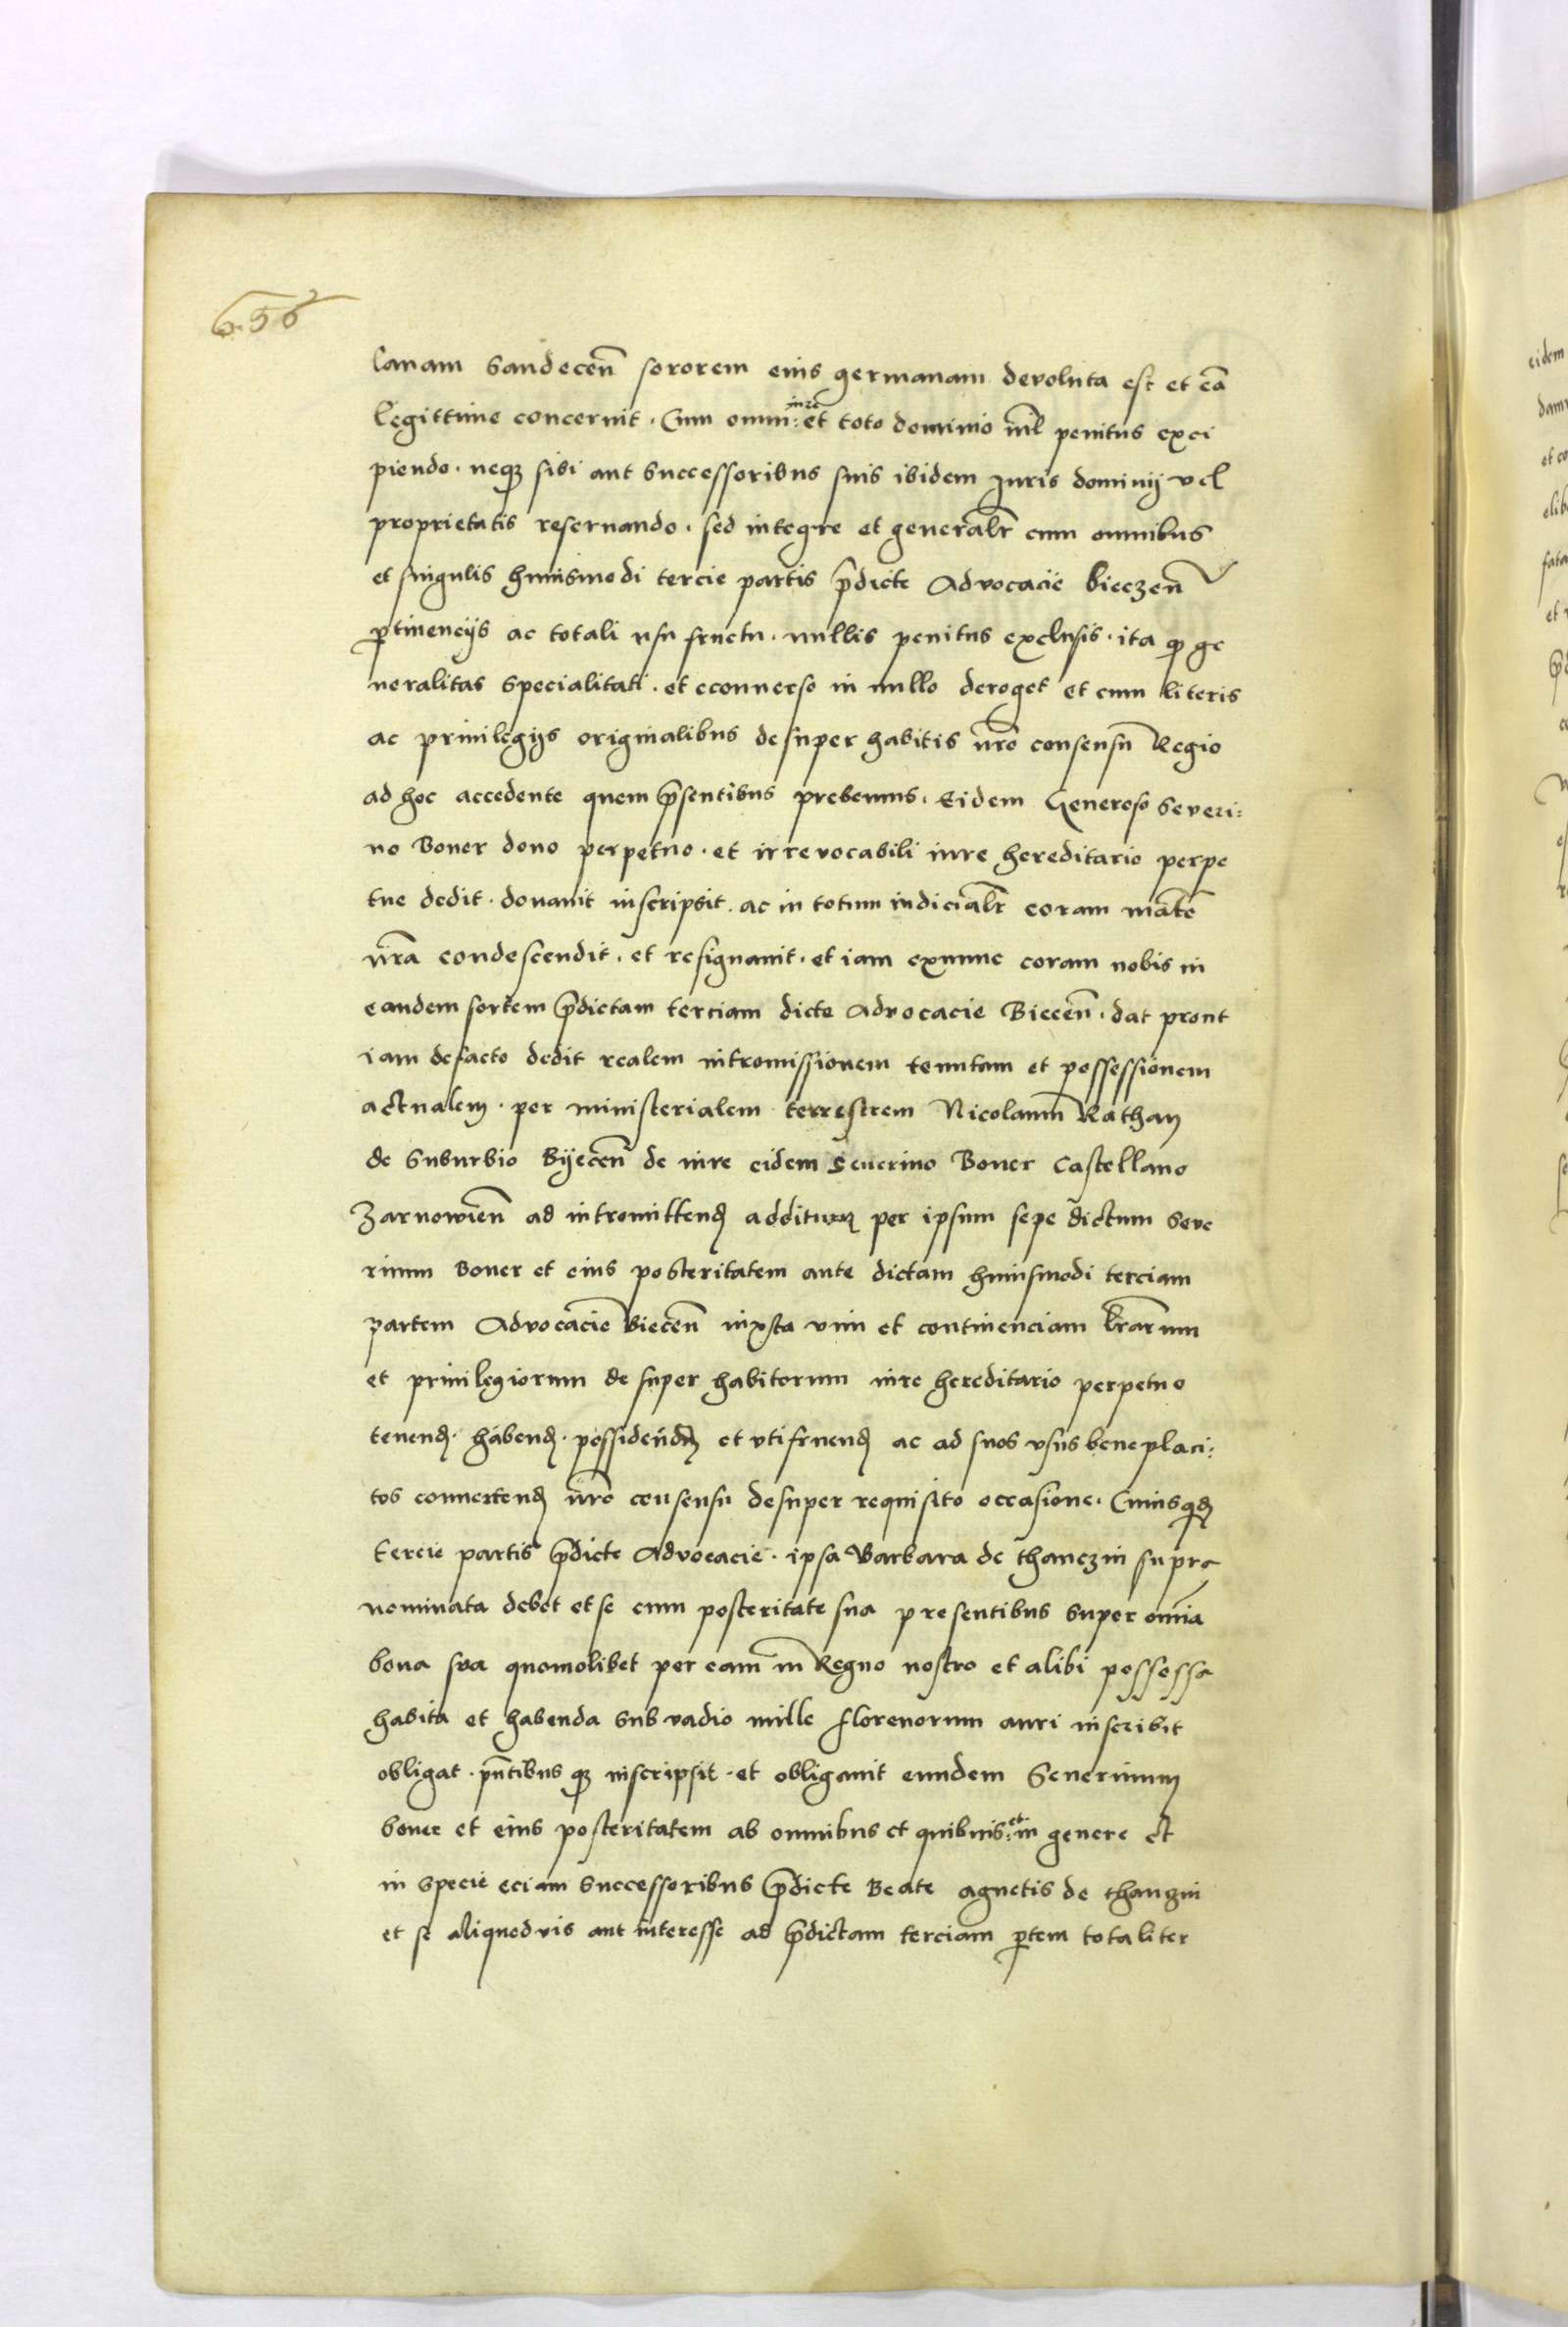 656
lanam Sandecen̄ sororem eius germanam devoluta est et eā
legittime concernit. Cum omni iure et toto dominio nil̄ penitus exci
piendo. neq₃ sibi aut Successoribus suis ibidem Juris dominij vel
proprietatis reseruando. sed integre et generalr̄ cum omnibus
et singulis huiusmodi tercie partis p̄dicte Advocacie bieczen̄
ptinencijs ac totali usu fructu. nullis penitus exclusis. ita q ge
neralitas Specialitati. et econuerso in nullo deroget et cum literis
ac priuilegijs originalibus desuper habitis nr̄o consensu Regio
ad hoc accedente quem p̄sentibus prebemus. Eidem Generoso Severi:
no Boner dono perpetuo. et irrevocabili iure hereditario perpe
tue dedit. donauit inscripsit. ac in totum iudicialr̄ coram mat̄e
nr̄a condescendit. et resignauit. et iam exnunc coram nobis in
eandem sortem p̄dictam terciam dicte Advocacie Biecen̄. dat prout
iam defacto dedit realem intromissionem tenutam et possessionem
actualem. per ministerialem terrestrem Nicolaum Rathaȷ
de Suburbio Bijecen̄ de iure eidem Seuerino Boner Castellano
Zarnowien̄ ad intromittend̄ additum per ipsum sepe dictum Seve
rinum Boner et eius posteritatem ante dictam huiusmodi terciam
partem Advocacie Biecen̄ iuxta vim et continenciam lr̄arum
et priuilegiorum desuper habitorum iure hereditario perpetuo
tenend̄. habend̄. possidend̄ et vtifruend̄ ac ad suos vsus beneplaci:
tos conuertend̄ nr̄o consensu desuper requisito occasione. Cuiusquid̄
tercie partis p̄dicte Advocacie. ipsa Barbara de Thanczin supra
nominata debet et se cum posteritate sua presentibus super omnia
bona sua quomolibet per eam in Regno nostro et alibi possessa
habita et habenda sub vadio mille florenorum auri inscribit
obligat. pn̄tibus q₃ inscripsit. et obligauit eundem Seuerinum
boner et eius posteritatem ab omnibus et quibuis: et in genere et
in specie eciam Successoribus p̄dicte Beate agnetis de Thanzin
et se aliquod vis aut interesse ad p̄dictam terciam ptem totaliter